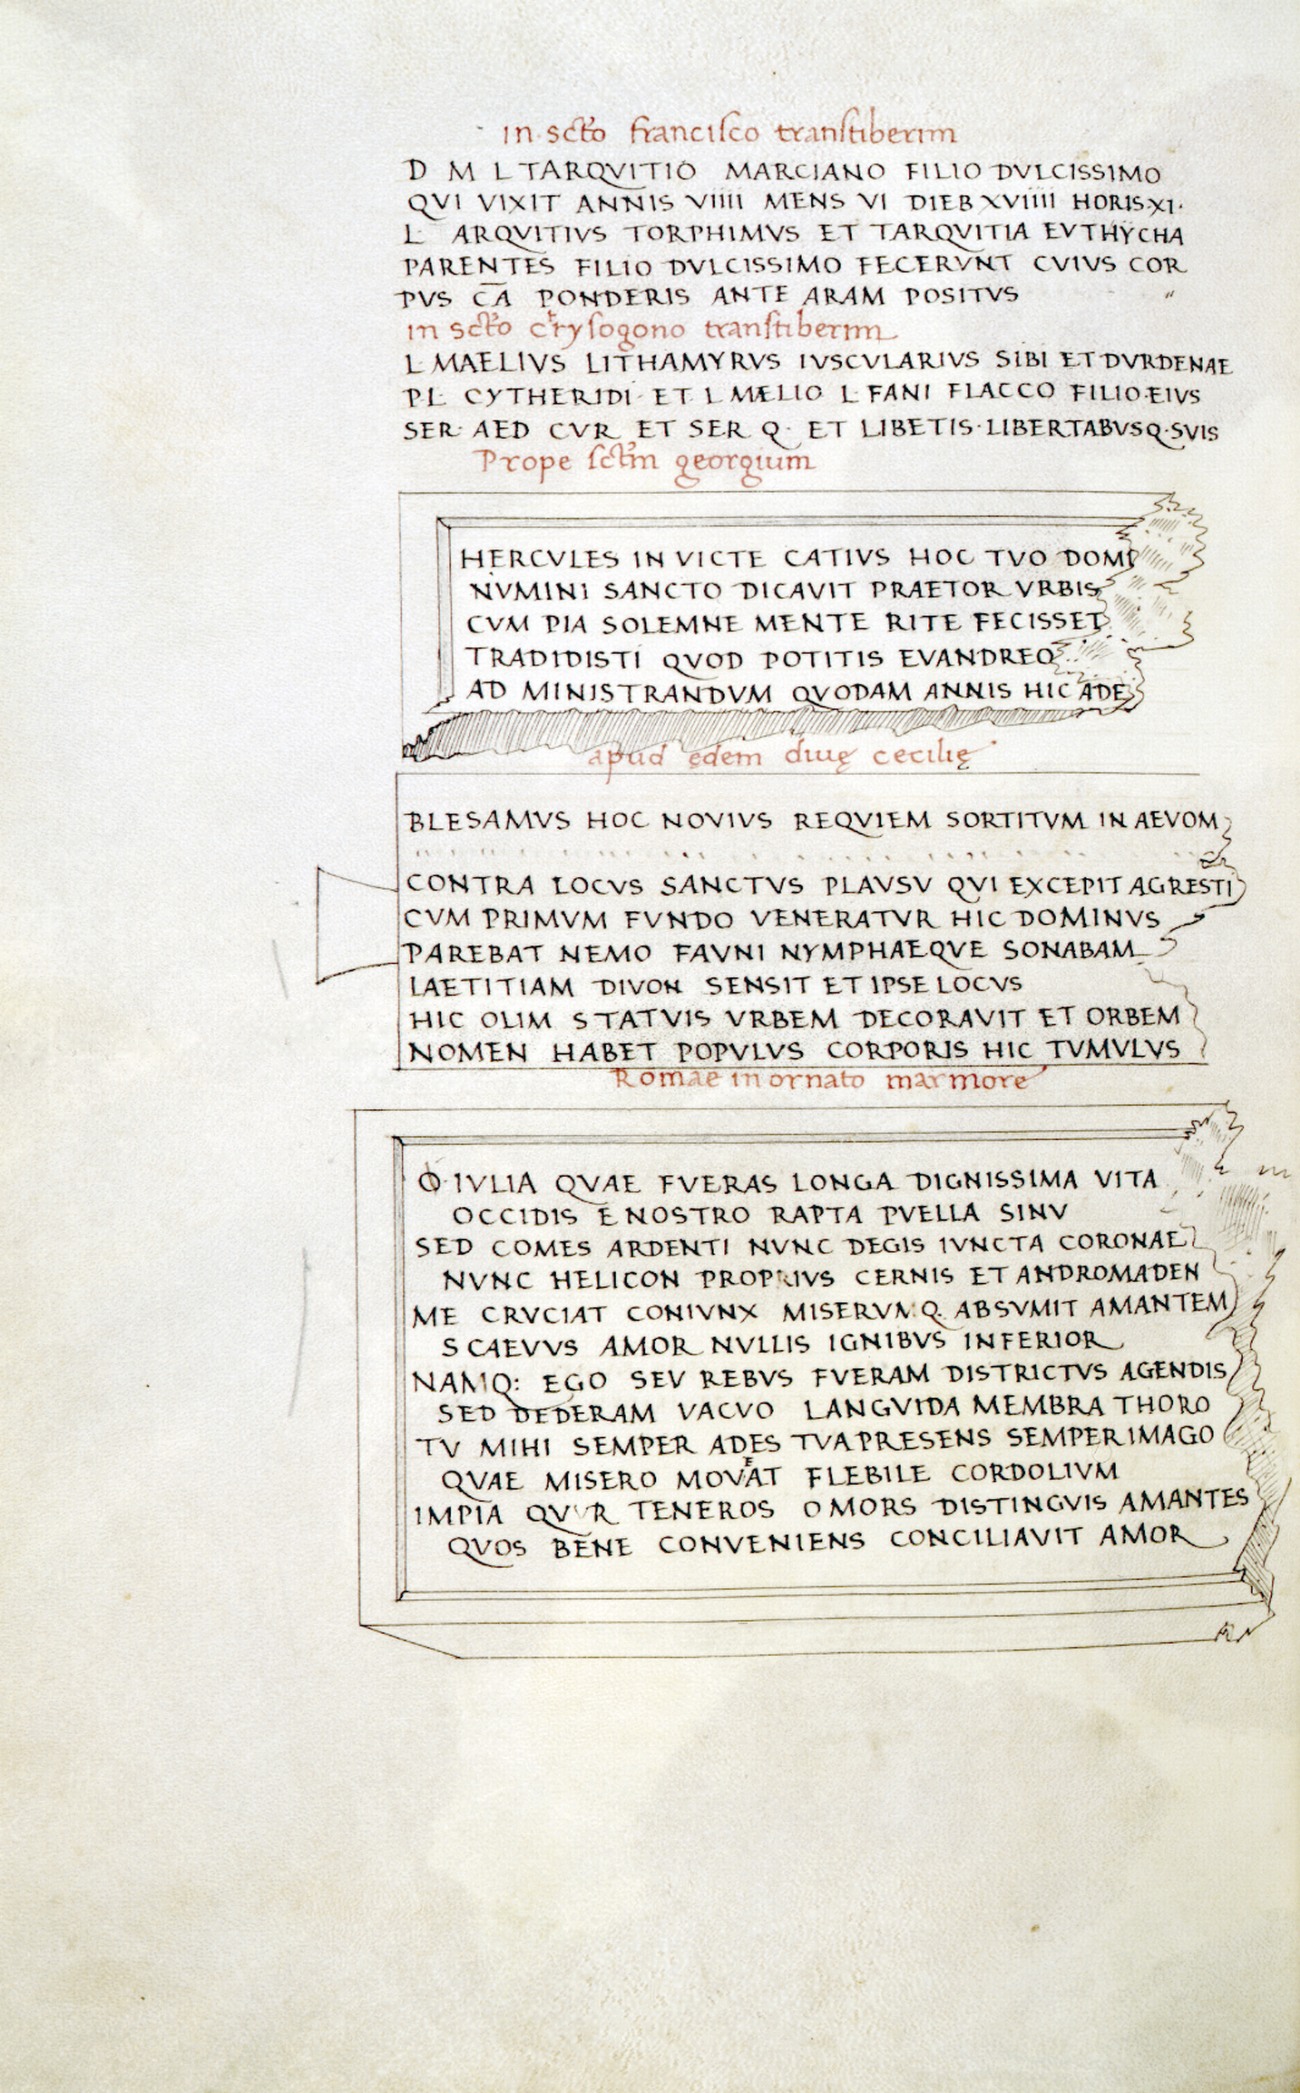 in scto francisco transtiberim
D M L TARQVITIO MARCIANO FILIO DVLCISSIMO
QVI VIXIT ANNIS VIIII MENS VI DIEB XVIIII HORIS·XI·
L ARQVITIVS TORPHIMVS ET TARQVITIA EVTHYCHA
PARENTES FILIO DVLCISSIMO FECERVNT CVIVS COR
PVS C̅A̅ PONDERIS ANTE ARAM POSITVS
in scto crysogono transtiberim
L MAELIVS LITHAMYRVS IVSCVLARIVS SIBI ET DVRDENAE
P·L· CYTHERIDI· ET L MÆLIO L FANI FLACCO FILIO·EIVS
SER· AED CVR ET SER Q· ET LIBETIS·LIBERTABVSQ·SVIS
Prope sctm georgium
HERCVLES IN VICTE CATIVS HOC TVO DOM
NVMINI SANCTO DICAVIT PRAETOR VRBIS
CVM PIA SOLEMNE MENTE RITE FECISSET
TRADIDISTI QVOD POTITIS EVANDREO
AD MINISTRANDVM QVODAM ANNIS HIC ADE
apud edem diuę cecilię
BLESAMVS HOC NOVIVS REQVIEM SORTITVM IN AEVOM
CONTRA LOCVS SANCTVS PLAVSV QVI EXCEPIT AGRESTI
CVM PRIMVM FVNDO VENERATVR HIC DOMINVS
PAREBAT NEMO FAVNI NYMPHAEQVE SONABAM
LAETITIAM DIVON SENSIT ET IPSE LOCVS
HIC OLIM STATVIS VRBEM DECORAVIT ET ORBEM
NOMEN HABET POPVLVS CORPORIS HIC TVMVLVS
Romae in ornato marmore
O IVLIA QVAE FVERAS LONGA DIGNISSIMA VITA
OCCIDIS E NOSTRO RAPTA PVELLA SINV
SED COMES ARDENTI NVNC DEGIS IVNCTA CORONAE
NVNC HELICON PROPRIVS CERNIS ET ANDROMADEN
ME CRVCIAT CONIVNX MISERVMQ. ABSVMIT AMANTEM
SCAEVVS AMOR NVLLIS IGNIBVS INFERIOR
NAMQ: EGO SEV REBVS FVERAM DISTRICTVS AGENDIS
SED DEDERAM VACVO LANGVIDA MEMBRA THORO
TV MIHI SEMPER ADES TVA PRESENS SEMPER IMAGO
QVAE MISERO MOVEAT FLEBILE CORDOLIVM
IMPIA QVVR TENEROS O MORS DISTINGVIS AMANTES
QVOS BENE CONVENIENS CONCILIAVIT AMOR